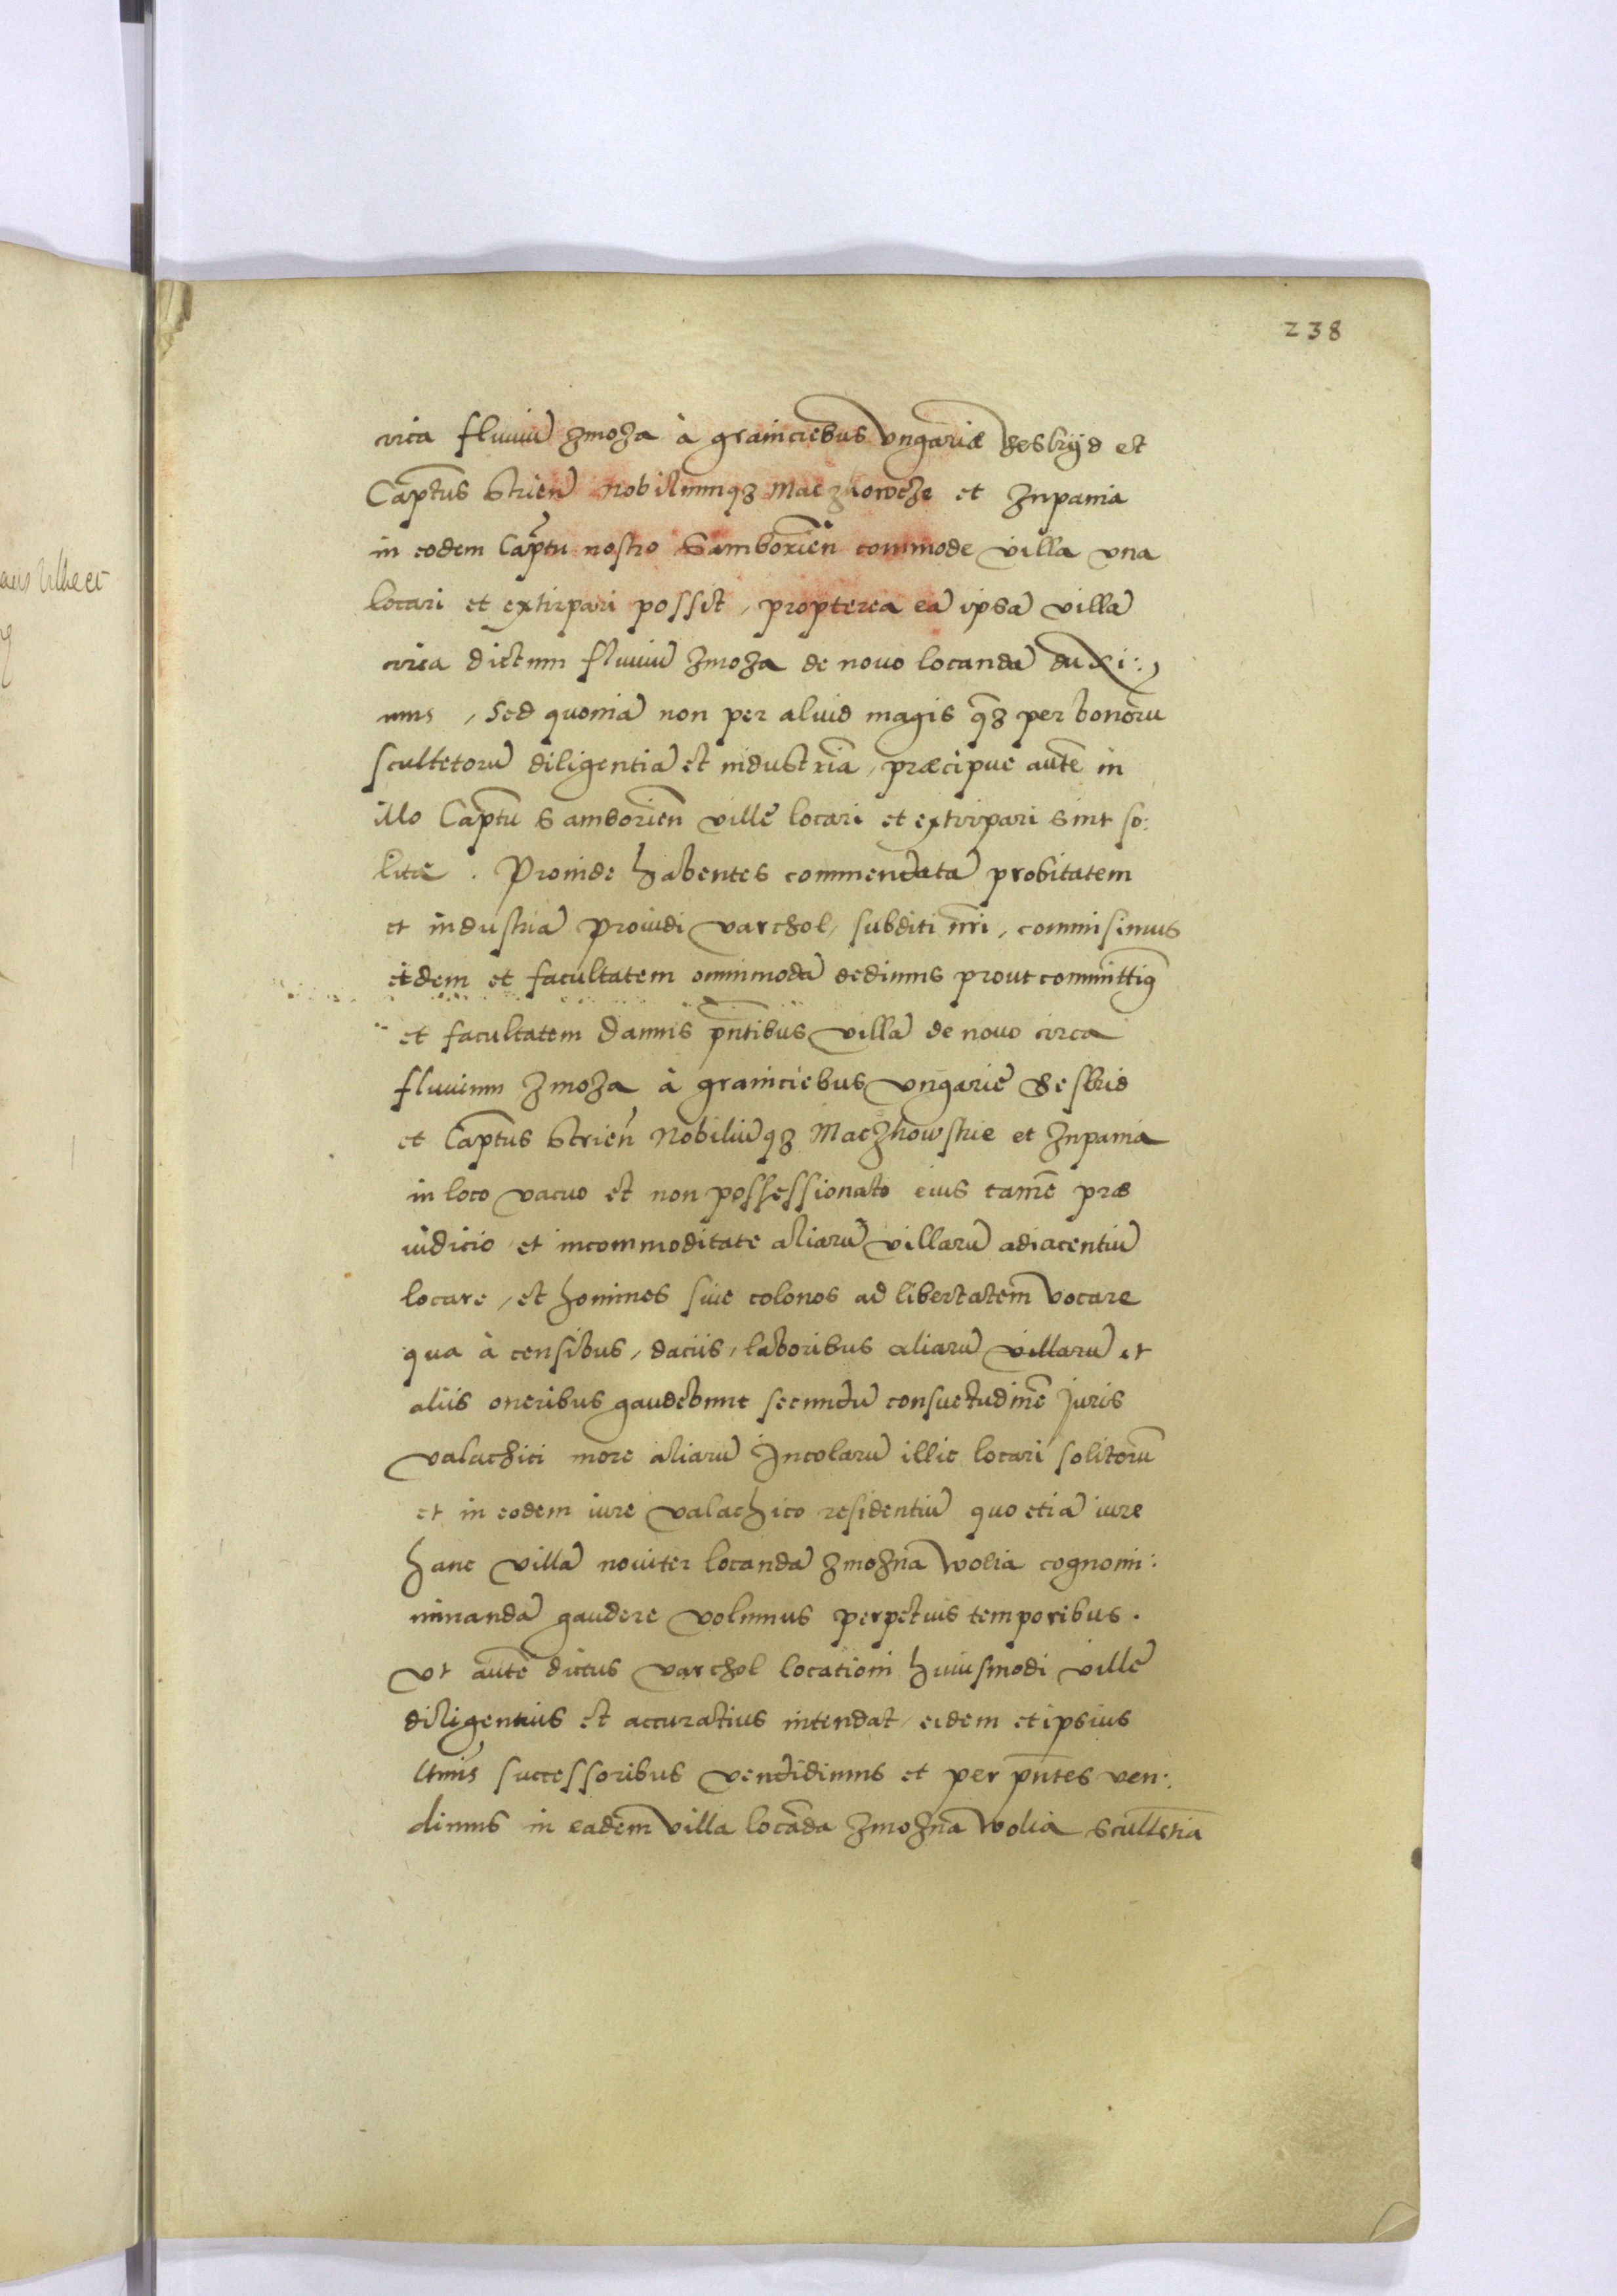 238
circa fluuiũ Zmoza à grainciebus Vngariæ Besbijd et
Capt̃us Strieñ Nobiliumqz Maczkowcze et Zupania
in eodem Cap̃tu nostro Samborieñ commode villa vna
locari et extirpari possit, propterea eã ipsã villã
circa dictum fluuiũ Zmoza de nouo locandã duxi:
mus, sed quoniã non per aliud magis q̃z per bonorũ
scultetorũ diligentiã et industriã, præcipue aut̃e in
illo Captũ Samborieñ ville locari et extirpari sint so:
litæ. Proinde habentes commendatã probitatem
et industriã prouidi Varchol, subditi nr̃i, commisimus
eidem et facultatem omnimodã dedimus prout committiq̃
et facultatem damus pñtibus villã de nouo circa
fluuium Zmoza à grainciebus Vngarie Besbid
et Cap̃tus Strieñ Nobiliũqz Maczkowskie et Zupania
in loco vacuo et non possessionato eius tamẽ præ
iudicio et incommoditate aliarũ villarũ adiacentiũ
locare, et homines siue colonos ad libertatem vocare
qua à censibus, daciis, laboribus aliarũ villarũ et
aliis oneribus gaudebunt secundũ consuetudinẽ Juris
Valachici more aliarũ Incolarũ illic locari solitorũ
et in eodem iure Valachico residentiũ quo etiã iure
hanc villã nouiter locandã Zmoznã Wolia cognomi:
minandã gaudere volumus perpetuis temporibus.
Vt autẽ dictus Varchol locationi huiusmodi ville
diligentius et accuratius intendat, eidem et ipsius
ltmis successoribus vendidimus et per pñtes ven:
dimus in eadem villa locãda Zmozna Wolia scultetiã